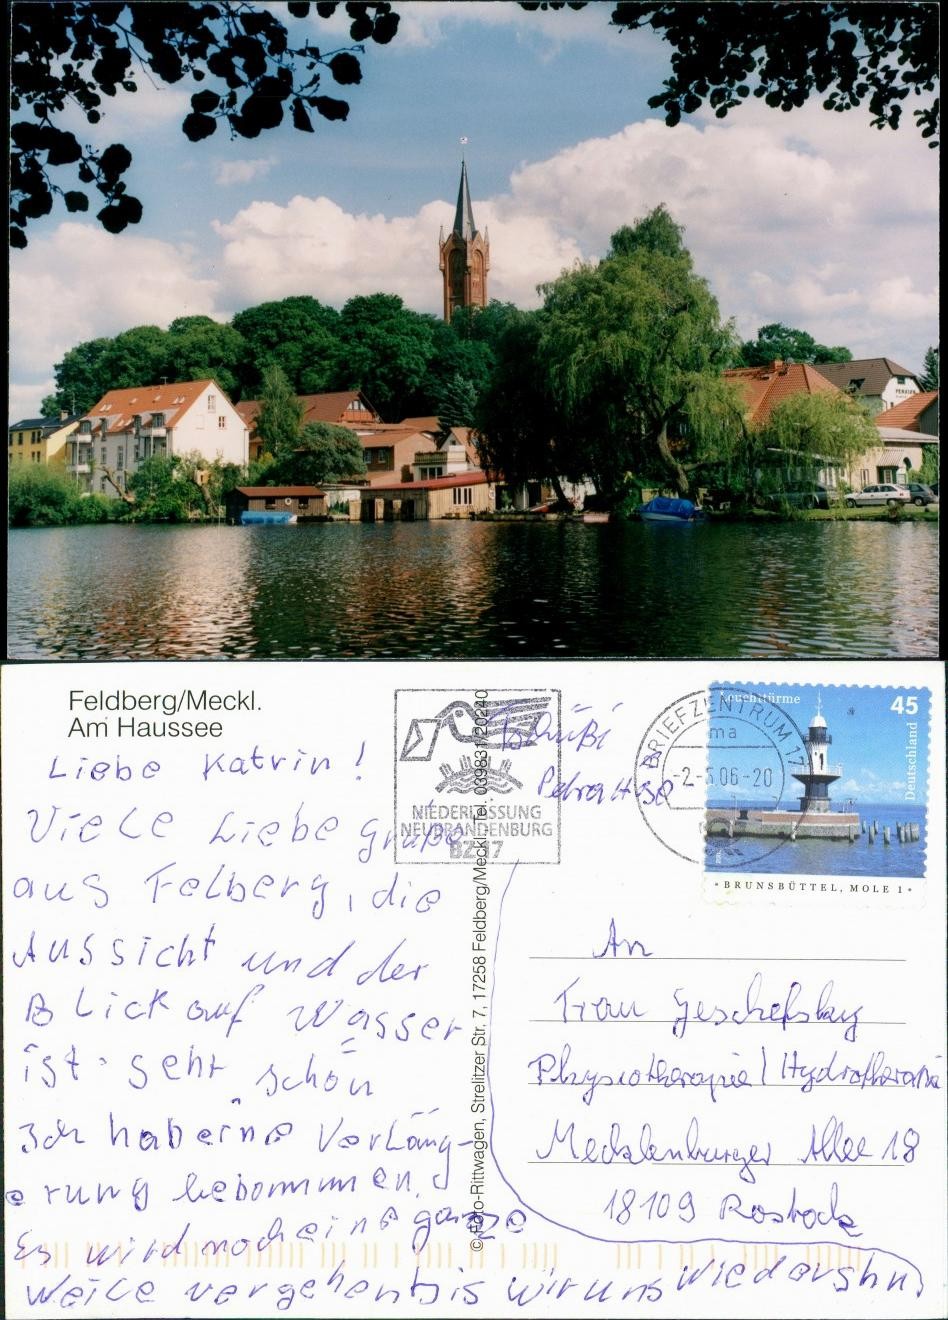 PENSION
Feldberg/Meckl.
Am Haussee
Liebe Katrin!
Viele Liebe grüße
aus Felberg, die
Aussicht und der
Blick auf Wasser
ist sehr schön
Ich habe rne Verläng-
erung bekommen.
Es wird noch eine ganze
Weile vergehen bis wir uns wiedersehn,
Tschüßi
Petra Hase
NIEDERLASSUNG
NEUBRANDENBURG
BZ 17
BRIEFZENTRUM 17
ma
-2.-5.06-20
Leuchttürme
45
Deutschland
• BRUNSBÜTTEL, MOLE 1 •
© Foto-Rittwagen, Strelitzer Str. 7, 17258 Feldberg/Meckl. Tel. 039831/20240
An
Frau
Physiotherapie / Hydrotherapie
Mecklenburger Allee 18
18109 Rostock